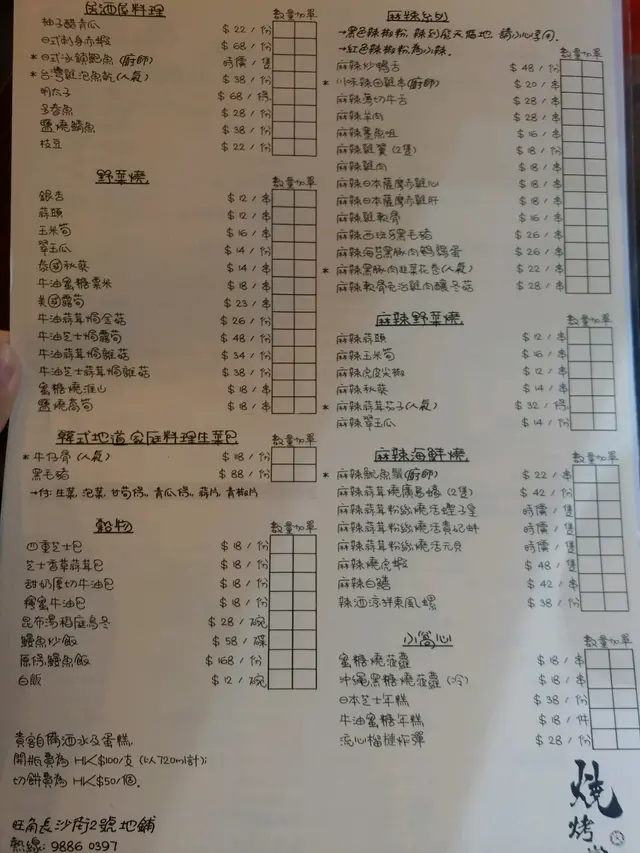 居酒屋料理
數量加單
柚子醋青瓜 $22/份
日式刺身赤蝦 $68/份
*日式冰鎮鮑魚(廚師) 時價/隻
*台灣雞泡魚乾(人氣) $38/份
明太子 $68/條
多春魚 $28/份
鹽燒鯖魚 $38/份
枝豆 $22/份
野菜燒
數量加單
銀杏 $12/串
蒜頭 $12/串
玉米筍 $16/串
翠玉瓜 $14/份
泰國秋葵 $14/串
牛油蜜糖粟米 $18/串
美國露筍 $23/串
牛油蒜茸焗金菇 $26/份
牛油芝士焗露筍 $48/份
牛油蒜茸焗雜菇 $34/份
牛油芝士蒜茸焗雜菇 $38/份
蜜糖燒淮山 $18/串
鹽燒萵筍 $18/串
韓式地道家庭料理生菜包
數量加單
*牛仔骨(人氣) $118/份
黑毛豬 $88/份
→付: 生菜, 泡菜, 甘筍條, 青瓜條, 蒜片, 青椒片
穀物
數量加單
四重芝士包 $18/份
芝士香草蒜茸包 $18/份
甜奶厚切牛油包 $18/份
檸蜜牛油包 $18/份
昆布湯稻庭烏冬 $28/碗
鰻魚炒飯 $58/碟
原條鰻魚飯 $168/份
白飯 $12/碗
貴客自備酒水及蛋糕
開瓶費為 HK$100/支(以720ml計);
切餅費為 HK$50/個.
旺角長沙街2號地舖
熱線: 9886 0397
麻辣系列
→黑色辣椒粉 辣到庭天暗地, 請小心享用.
→紅色辣椒粉為小辣.
數量加單
麻辣炒鴨舌 $48/份
*川味辣田雞串(廚師) $20/串
麻辣薄切牛舌 $28/串
麻辣羊肉 $28/串
麻辣墨魚咀 $16/串
麻辣雞翼(2隻) $18/份
麻辣雞肉 $18/串
麻辣日本薩摩赤雞心 $18/串
麻辣日本薩摩赤雞肝 $18/串
麻辣雞軟骨 $16/串
麻辣西班牙黑毛豬 $26/串
麻辣海苔黑豚肉鵪鶉蛋 $26/串
*麻辣黑豚肉韭菜花卷(人氣) $22/串
麻辣軟骨毛治雞肉釀冬菇 $28/串
麻辣野菜燒
數量加單
麻辣蒜頭 $12/串
麻辣玉米筍 $16/串
麻辣虎皮尖椒 $12/串
麻辣秋葵 $14/串
*麻辣蒜茸茄子(人氣) $32/條
麻辣翠玉瓜 $14/份
麻辣海鮮燒
數量加單
*麻辣魷魚鬚(廚師) $22/串
麻辣蒜茸燒廣島蠔(2隻) $42/份
麻辣蒜茸粉絲燒活蟶子皇 時價/隻
麻辣蒜茸粉絲燒活貴妃蚌 時價/隻
麻辣蒜茸粉絲燒活元貝 時價/隻
麻辣燒虎蝦 $48/隻
麻辣白鱔 $42/串
辣酒涼拌東風螺 $38/份
小窩心
數量加單
蜜糖燒菠蘿 $18/串
沖繩黑糖燒菠蘿(冷) $18/串
日本芝士年糕 $38/份
牛油蜜糖年糕 $18/件
流心榴槤炸彈 $28/份
燒
烤